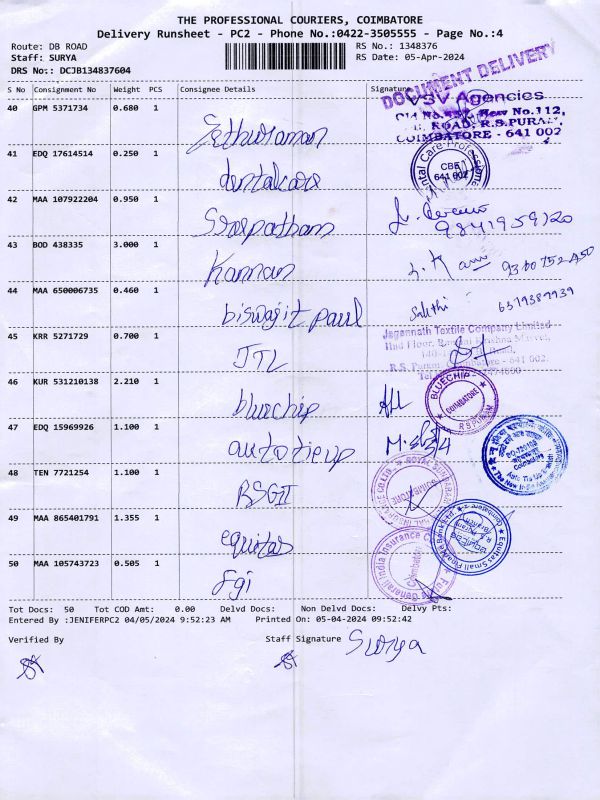 THE PROFESSIONAL COURIERS, COIMBATORE
Delivery Runsheet - PC2 - Phone No.:0422-3505555 - Page No.:4
Route: DB ROAD RS No.: 1348376
Staff: SURYA RS Date: 05-Apr-2024
DRS No.: DCJB134837604
DOCUMENT DELIVERY
S No Consignment No Weight PCS Consignee Details Signature
VSV Agencies
40 GPM 5371734 0.680 1
New No.112,
ROAD, R.S.PURAM,
COIMBATORE - 641 002
Sethuraman
41 EDQ 17614514 0.250 1
Dental Care Professionals
CBE
641 002
dentalcare
42 MAA 107922204 0.950 1
9841959120
43 BOD 438335 3.000 1
Kannan
44 MAA 650006735 0.460 1
Sakthi 6379389939
biswajit paul
45 KRR 5271729 0.700 1
Jagannath Textile Company Limited
JTL
46 KUR 531210138 2.210 1
BLUECHIP
COIMBATORE
R S PURAM
bluechip
47 EDQ 15969926 1.100 1
autotieup
48 TEN 7721254 1.100 1
RSGI
49 MAA 865401791 1.355 1
Equitas Small Finance Bank Ltd
equitas
50 MAA 105743723 0.505 1
Future Generali India Insurance
Coimbatore
fgi
Tot Docs: 50 Tot COD Amt: 0.00 Delvd Docs: Non Delvd Docs: Delvy Pts:
Entered By :JENIFERPC2 04/05/2024 9:52:23 AM Printed On: 05-04-2024 09:52:42
Verified By Staff Signature Surya